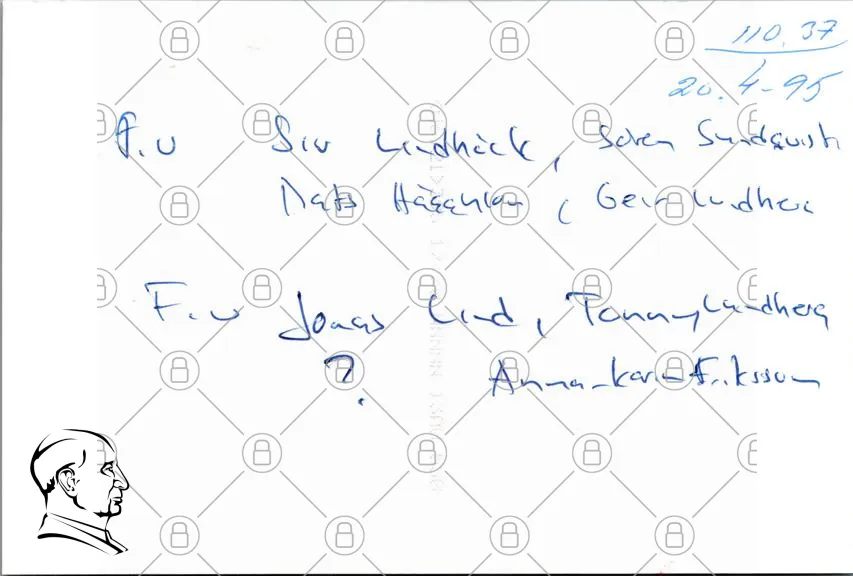 110.37
20.4-95
F.v Siv Lindhäck, Sören Sundqvist
Mats Hägglöm, Geir Lundberg
F.v Jonas Lind, Tommy Lundberg
? Anna-Karin Eriksson